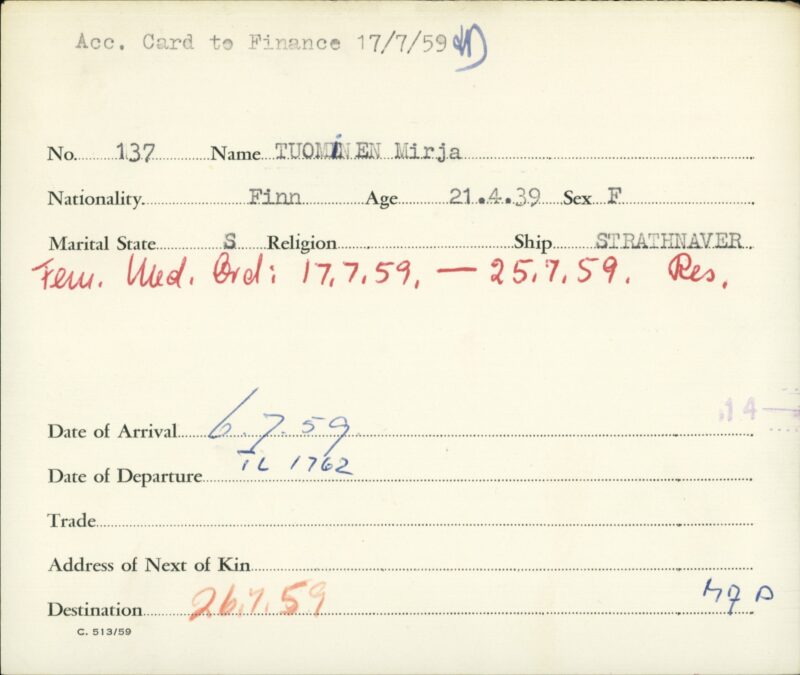 Acc. Card to Finance 17/7/59
No. 137 Name TUOMINEN Mirja
Nationality. Finn Age 21.4.39 Sex F
Marital State S Religion Ship STRATHNAVER
Fem. Med. Ord: 17.7.59. — 25.7.59. Res.
14
Date of Arrival 6.7.59
TL 1762
Date of Departure
Trade
Address of Next of Kin
Destination 26.7.59
C. 513/59